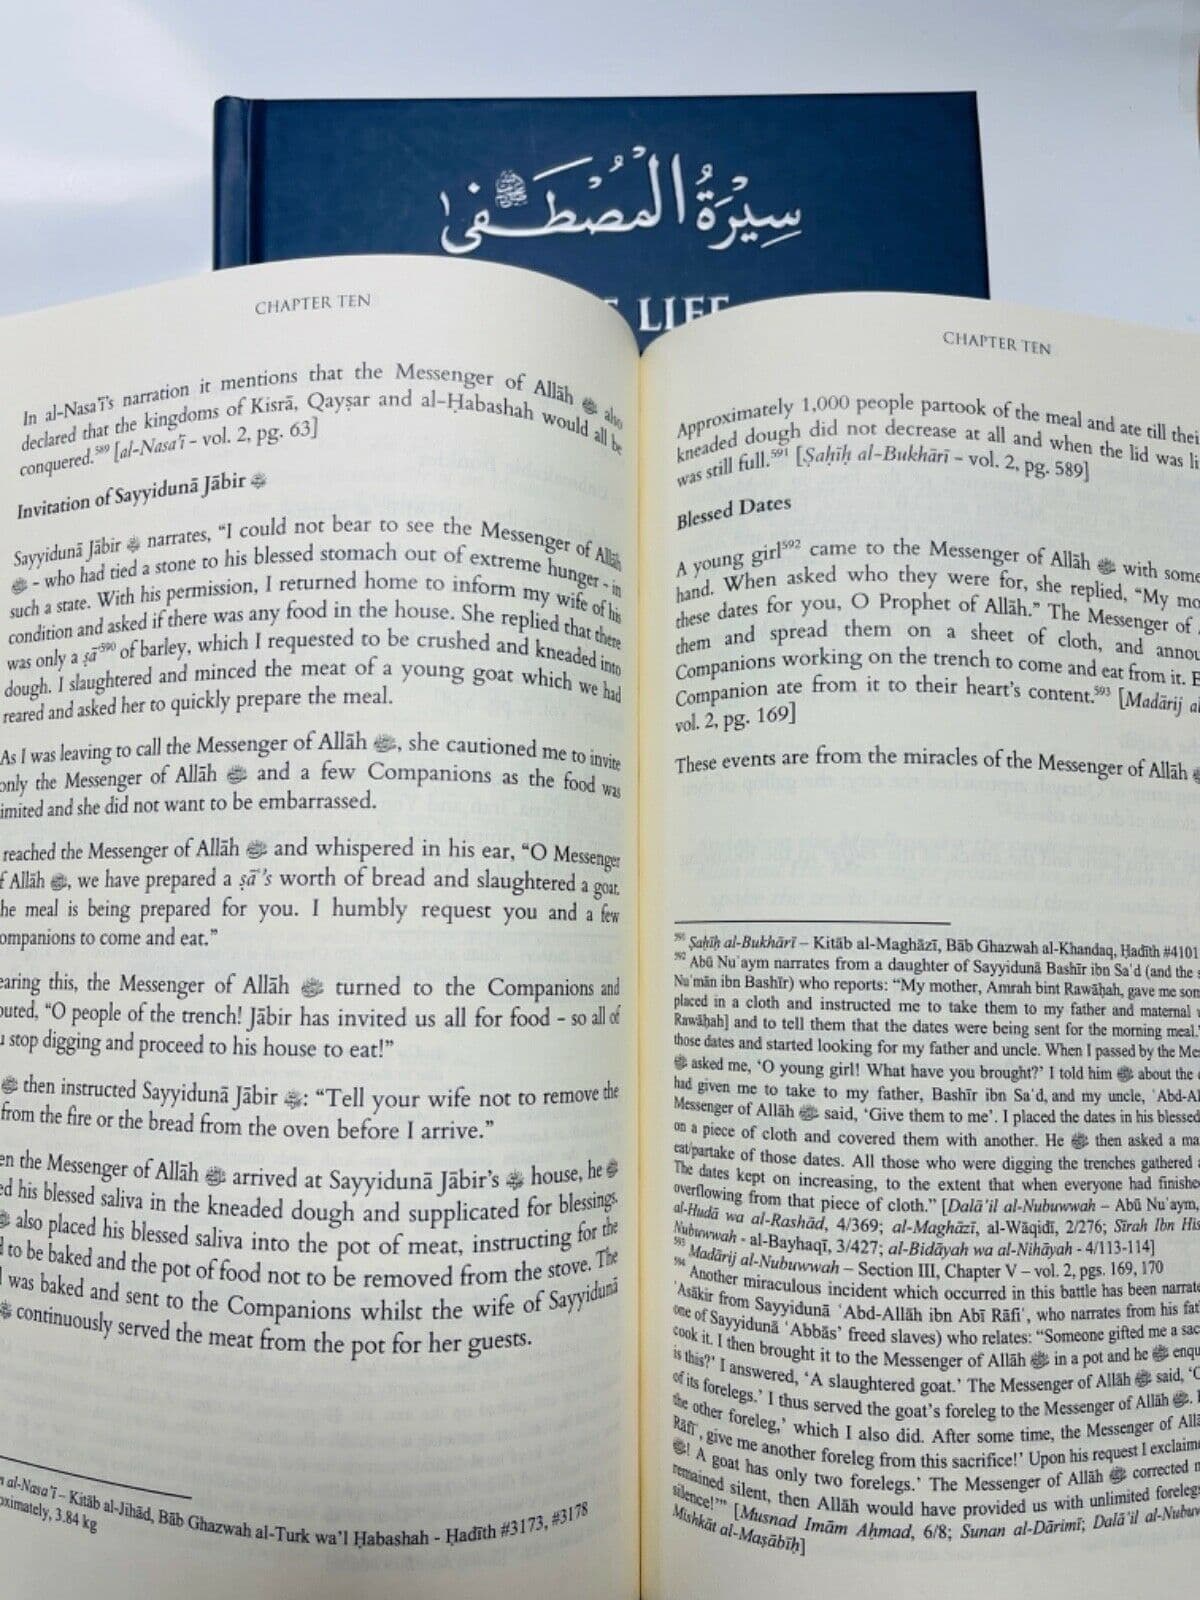 سِيْرَةُ الْمُصْطَفٰى ﷺ
LIFE
CHAPTER TEN
In al-Nasa'ī's narration it mentions that the Messenger of Allāh ﷺ also
declared that the kingdoms of Kisrā, Qayṣar and al-Ḥabashah would all be
conquered.⁵⁸⁹ [al-Nasa'ī – vol. 2, pg. 63]
Invitation of Sayyidunā Jābir
Sayyidunā Jābir narrates, "I could not bear to see the Messenger of Allāh
ﷺ - who had tied a stone to his blessed stomach out of extreme hunger - in
such a state. With his permission, I returned home to inform my wife of his
condition and asked if there was any food in the house. She replied that there
was only a ṣā'⁵⁹⁰ of barley, which I requested to be crushed and kneaded into
dough. I slaughtered and minced the meat of a young goat which we had
reared and asked her to quickly prepare the meal.
As I was leaving to call the Messenger of Allāh ﷺ, she cautioned me to invite
only the Messenger of Allāh ﷺ and a few Companions as the food was
limited and she did not want to be embarrassed.
reached the Messenger of Allāh ﷺ and whispered in his ear, "O Messenger
Allāh ﷺ, we have prepared a ṣā's worth of bread and slaughtered a goat.
he meal is being prepared for you. I humbly request you and a few
ompanions to come and eat."
earing this, the Messenger of Allāh ﷺ turned to the Companions and
outed, "O people of the trench! Jābir has invited us all for food – so all of
stop digging and proceed to his house to eat!"
ﷺ then instructed Sayyidunā Jābir : "Tell your wife not to remove the
from the fire or the bread from the oven before I arrive."
en the Messenger of Allāh ﷺ arrived at Sayyidunā Jābir's house, he ﷺ
ed his blessed saliva in the kneaded dough and supplicated for blessings.
ﷺ also placed his blessed saliva into the pot of meat, instructing for the
to be baked and the pot of food not to be removed from the stove. The
was baked and sent to the Companions whilst the wife of Sayyidunā
continuously served the meat from the pot for her guests.
al-Nasa'ī – Kitāb al-Jihād, Bāb Ghazwah al-Turk wa'l Ḥabashah - Ḥadīth #3173, #3178
oximately, 3.84 kg
CHAPTER TEN
Approximately 1,000 people partook of the meal and ate till thei
kneaded dough did not decrease at all and when the lid was li
was still full.⁵⁹¹ [Ṣaḥīḥ al-Bukhārī – vol. 2, pg. 589]
Blessed Dates
A young girl⁵⁹² came to the Messenger of Allāh ﷺ with some
hand. When asked who they were for, she replied, "My mo
these dates for you, O Prophet of Allāh." The Messenger of
them and spread them on a sheet of cloth, and annou
Companions working on the trench to come and eat from it. E
Companion ate from it to their heart's content.⁵⁹³ [Madārij al
vol. 2, pg. 169]
These events are from the miracles of the Messenger of Allāh ﷺ
⁵⁹¹ Ṣaḥīḥ al-Bukhārī – Kitāb al-Maghāzī, Bāb Ghazwah al-Khandaq, Ḥadīth #4101
⁵⁹² Abū Nu'aym narrates from a daughter of Sayyidunā Bashīr ibn Sa'd (and the s
Nu'mān ibn Bashīr) who reports: "My mother, Amrah bint Rawāḥah, gave me som
placed in a cloth and instructed me to take them to my father and maternal
Rawāḥah] and to tell them that the dates were being sent for the morning meal.
those dates and started looking for my father and uncle. When I passed by the Mes
ﷺ asked me, 'O young girl! What have you brought?' I told him ﷺ about the
had given me to take to my father, Bashīr ibn Sa'd, and my uncle, 'Abd-Al
Messenger of Allāh ﷺ said, 'Give them to me'. I placed the dates in his blessed
on a piece of cloth and covered them with another. He ﷺ then asked a ma
eat/partake of those dates. All those who were digging the trenches gathered
The dates kept on increasing, to the extent that when everyone had finished
overflowing from that piece of cloth." [Dalā'il al-Nubuwwah – Abū Nu'aym,
al-Hudā wa al-Rashād, 4/369; al-Maghāzī, al-Wāqidī, 2/276; Sīrah Ibn His
Nubuwwah - al-Bayhaqī, 3/427; al-Bidāyah wa al-Nihāyah - 4/113-114]
⁵⁹³ Madārij al-Nubuwwah – Section III, Chapter V – vol. 2, pgs. 169, 170
⁵⁹⁴ Another miraculous incident which occurred in this battle has been narrate
'Asākir from Sayyidunā 'Abd-Allāh ibn Abī Rāfi', who narrates from his fat
one of Sayyidunā 'Abbās' freed slaves) who relates: "Someone gifted me a sac
cook it. I then brought it to the Messenger of Allāh ﷺ in a pot and he ﷺ enqu
is this?' I answered, 'A slaughtered goat.' The Messenger of Allāh ﷺ said,
of its forelegs.' I thus served the goat's foreleg to the Messenger of Allāh ﷺ.
the other foreleg,' which I also did. After some time, the Messenger of Allā
Rāfi', give me another foreleg from this sacrifice!' Upon his request I exclaime
ﷺ! A goat has only two forelegs.' The Messenger of Allāh ﷺ corrected m
remained silent, then Allāh would have provided us with unlimited forelegs
silence!'" [Musnad Imām Aḥmad, 6/8; Sunan al-Dārimī; Dalā'il al-Nubu
Mishkāt al-Maṣābīḥ]